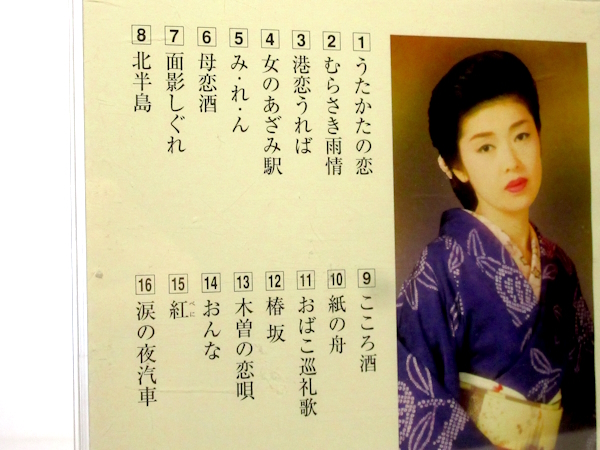 1 うたかたの恋
2 むらさき雨情
3 港恋うれば
4 女のあざみ駅
5 み・れ・ん
6 母恋酒
7 面影しぐれ
8 北半島
9 こころ酒
10 紙の舟
11 おばこ巡礼歌
12 椿坂
13 木曽の恋唄
14 おんな
15 紅 べに
16 涙の夜汽車